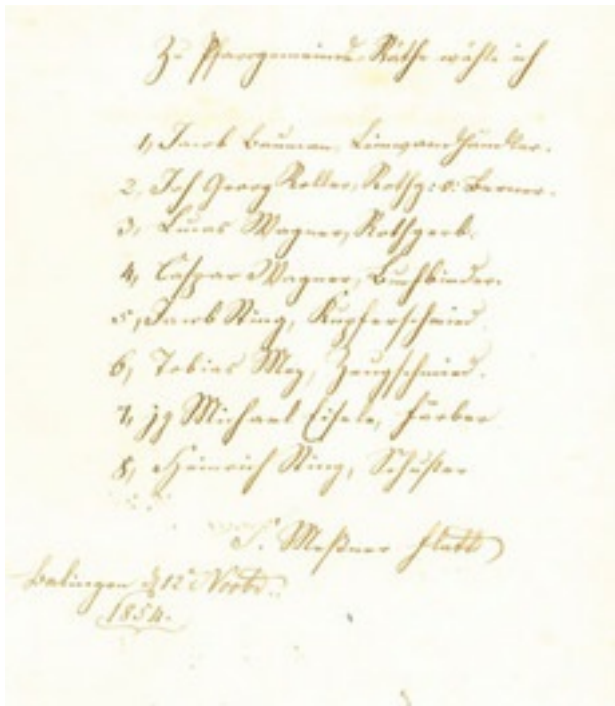 Zu Pfarrgemeinde Räthe wähle ich
1, Jacob Bauman, Leinwandhändler.
2, Joh Georg Roller, Rothg: b:
3, Lucas Wagner, Rothgerb.
4, Caspar Wagner, Buchbinder.
5, Jacob Ring, Kupferschmied
6, Tobias Mez, Zeugschmied.
7, jg Michael Eisele, Färber
8, Heinrich Ring, Schuster
Meßner
Balingen d 12 Novbr.
1854.